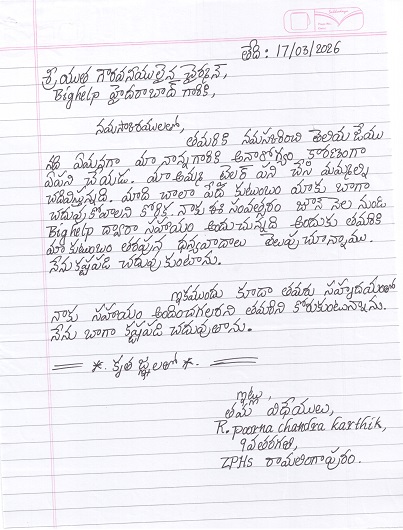 తేది : 17/03/2026
శ్రీయుత గౌరవనీయులైన చైర్మన్,
Bighelp హైదరాబాద్ గారికి,
నమస్కారములతో,
తమరికి నమస్కరించి తెలియజేయు
నది ఏమనగా మా నాన్నగారికి అనారోగ్యం కారణంగా
ఏపని చేయడు. మా అమ్మ టైలర్ పని చేసి మమ్మల్ని
చదివిస్తున్నది. మాది చాలా పేద కుటుంబం మాకు బాగా
చదువుకోవాలని కోరిక. నాకు ఈ సంవత్సరం జూన్ నెల నుండి
Bighelp ద్వారా సహాయం అందుచున్నది అందుకు తమరికి
మా కుటుంబం తరపున ధన్యవాదాలు తెలుపుచున్నాము.
నేను కష్టపడి చదువుకుంటాను.
ఇకముందు కూడా తమరు సహృదయంతో
నాకు సహాయం అందించగలరని తమరిని కోరుకుంటున్నాను.
నేను బాగా కష్టపడి చదువుతాను.
*. కృతజ్ఞతలతో *.
ఇట్లు,
తమ విధేయులు,
R. poorna chandra karthik,
9వ తరగతి,
ZPHS రామలింగాపురం.